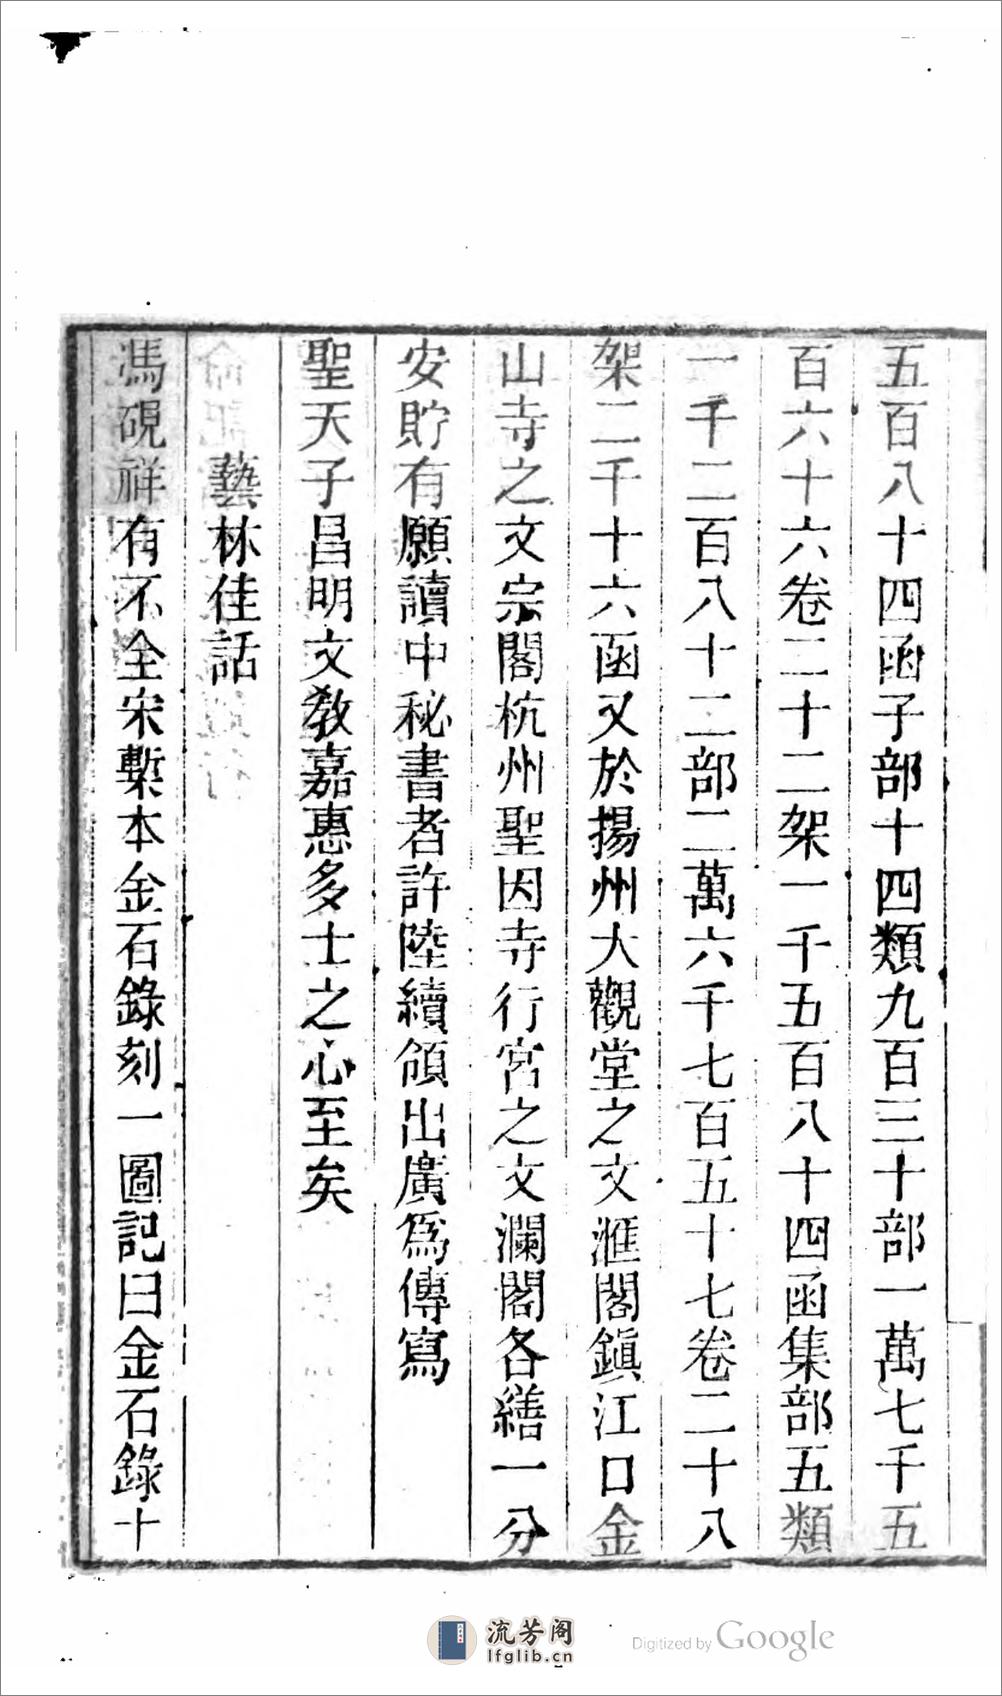 五百八十四函子部十四類九百三十部一萬七千五
百六十六卷二十二架一千五百八十四函集部五類
一千二百八十二部二萬六千七百五十七卷二十八
架二千十六函又於揚州大觀堂之文滙閣鎮江口金
山寺之文宗閣杭州聖因寺行宮之文瀾閣各繕一分
安貯有願讀中秘書者許陸續領出廣爲傳寫
聖天子昌明文敎嘉惠多士之心至矣
藝林佳話
馮硯祥有不全宋槧本金石錄刻一圖記曰金石錄十
流芳阁
lfglib.cn
Digitized by Google